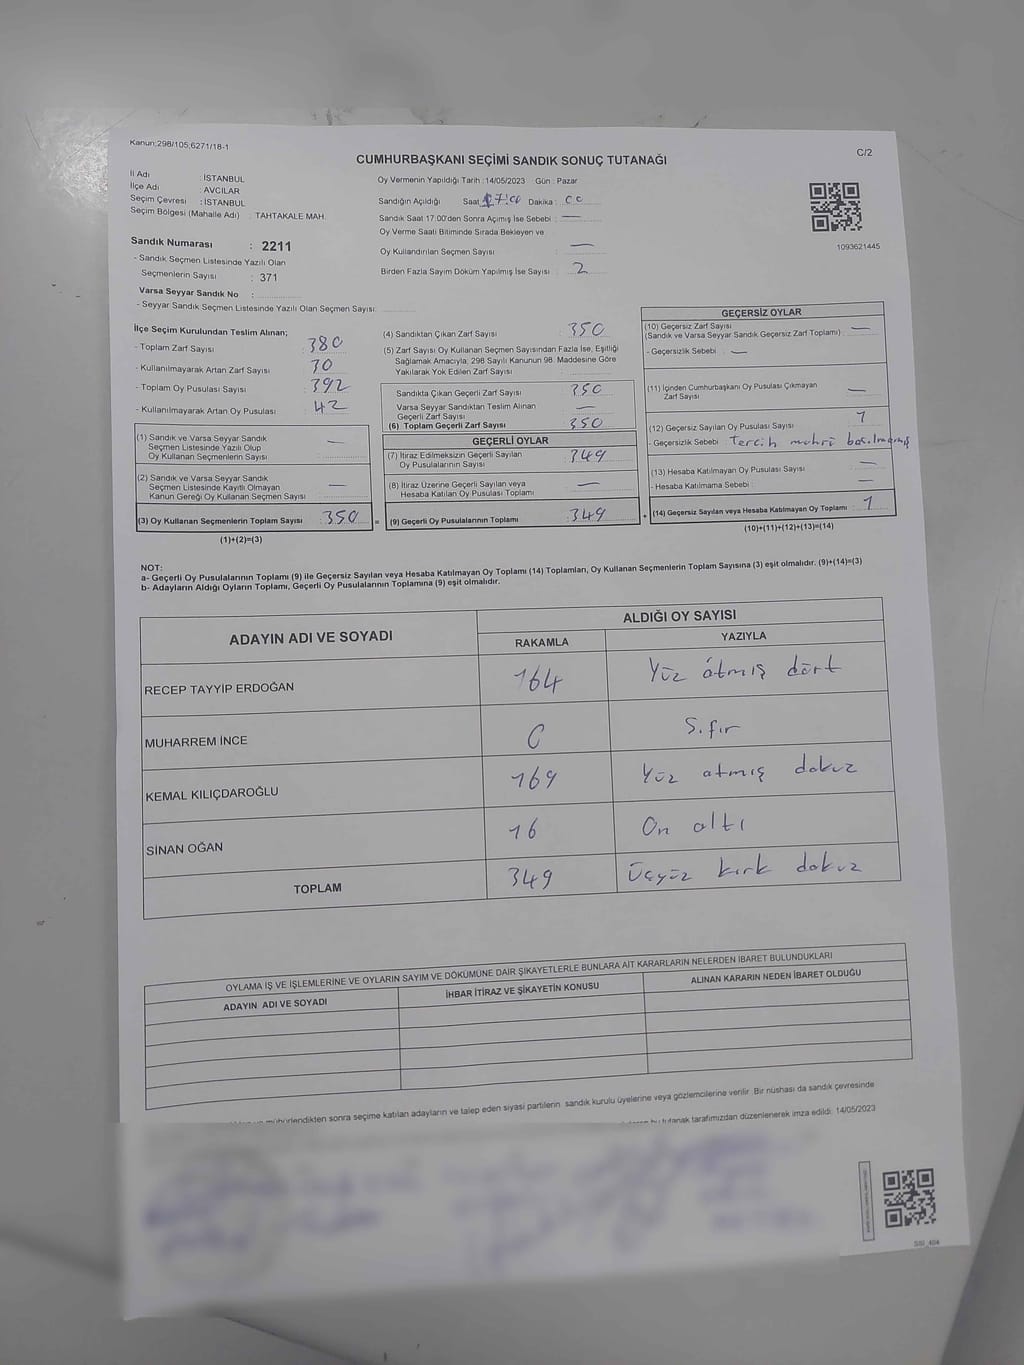 Kanun;298/105;6271/18-1
C/2
CUMHURBAŞKANI SEÇİMİ SANDIK SONUÇ TUTANAĞI
İl Adı : İSTANBUL
İlçe Adı : AVCILAR
Seçim Çevresi : İSTANBUL
Seçim Bölgesi (Mahalle Adı) : TAHTAKALE MAH.
Sandık Numarası : 2211
- Sandık Seçmen Listesinde Yazılı Olan
Seçmenlerin Sayısı : 371
Varsa Seyyar Sandık No :
- Seyyar Sandık Seçmen Listesinde Yazılı Olan Seçmen Sayısı:
Oy Vermenin Yapıldığı Tarih : 14/05/2023 Gün : Pazar
Sandığın Açıldığı Saat 17:00 Dakika : 00
Sandık Saat 17:00'den Sonra Açımış İse Sebebi : —
Oy Verme Saati Bitiminde Sırada Bekleyen ve
Oy Kullandırılan Seçmen Sayısı : —
Birden Fazla Sayım Döküm Yapılmış İse Sayısı : 2
1093621445
İlçe Seçim Kurulundan Teslim Alınan;
- Toplam Zarf Sayısı : 380
- Kullanılmayarak Artan Zarf Sayısı : 30
- Toplam Oy Pusulası Sayısı : 392
- Kullanılmayarak Artan Oy Pusulası : 42
(1) Sandık ve Varsa Seyyar Sandık
Seçmen Listesinde Yazılı Olup
Oy Kullanan Seçmenlerin Sayısı : —
(2) Sandık ve Varsa Seyyar Sandık
Seçmen Listesinde Kayıtlı Olmayan
Kanun Gereği Oy Kullanan Seçmen Sayısı : —
(3) Oy Kullanan Seçmenlerin Toplam Sayısı : 350
(1)+(2)=(3)
(4) Sandıktan Çıkan Zarf Sayısı : 350
(5) Zarf Sayısı Oy Kullanan Seçmen Sayısından Fazla İse, Eşitliği
Sağlamak Amacıyla, 298 Sayılı Kanunun 98. Maddesine Göre
Yakılarak Yok Edilen Zarf Sayısı :
Sandıkta Çıkan Geçerli Zarf Sayısı : 350
Varsa Seyyar Sandıktan Teslim Alınan
Geçerli Zarf Sayısı : —
(6) Toplam Geçerli Zarf Sayısı : 350
GEÇERLİ OYLAR
(7) İtiraz Edilmeksizin Geçerli Sayılan
Oy Pusulalarının Sayısı : 349
(8) İtiraz Üzerine Geçerli Sayılan veya
Hesaba Katılan Oy Pusulası Toplamı : —
= (9) Geçerli Oy Pusulalarının Toplamı : 349
GEÇERSİZ OYLAR
(10) Geçersiz Zarf Sayısı
(Sandık ve Varsa Seyyar Sandık Geçersiz Zarf Toplamı) : —
- Geçersizlik Sebebi : —
(11) İçinden Cumhurbaşkanı Oy Pusulası Çıkmayan
Zarf Sayısı : —
(12) Geçersiz Sayılan Oy Pusulası Sayısı : 1
- Geçersizlik Sebebi : tercih mührü basılmamış
(13) Hesaba Katılmayan Oy Pusulası Sayısı : —
- Hesaba Katılmama Sebebi : —
+ (14) Geçersiz Sayılan veya Hesaba Katılmayan Oy Toplamı : 1
(10)+(11)+(12)+(13)=(14)
NOT:
a- Geçerli Oy Pusulalarının Toplamı (9) ile Geçersiz Sayılan veya Hesaba Katılmayan Oy Toplamı (14) Toplamları, Oy Kullanan Seçmenlerin Toplam Sayısına (3) eşit olmalıdır. (9)+(14)=(3)
b- Adayların Aldığı Oyların Toplamı, Geçerli Oy Pusulalarının Toplamına (9) eşit olmalıdır.
ADAYIN ADI VE SOYADI ALDIĞI OY SAYISI
RAKAMLA YAZIYLA
RECEP TAYYİP ERDOĞAN 164 Yüz atmış dört
MUHARREM İNCE 0 Sıfır
KEMAL KILIÇDAROĞLU 169 Yüz atmış dokuz
SİNAN OĞAN 16 On altı
TOPLAM 349 Üçyüz kırk dokuz
OYLAMA İŞ VE İŞLEMLERİNE VE OYLARIN SAYIM VE DÖKÜMÜNE DAİR ŞİKAYETLERLE BUNLARA AİT KARARLARIN NELERDEN İBARET BULUNDUKLARI
ADAYIN ADI VE SOYADI İHBAR İTİRAZ VE ŞİKAYETİN KONUSU ALINAN KARARIN NEDEN İBARET OLDUĞU
mühürlendikten sonra seçime katılan adayların ve talep eden siyasi partilerin sandık kurulu üyelerine veya gözlemcilerine verilir. Bir nüshası da sandık çevresinde
bu tutanak tarafımızdan düzenlenerek imza edildi. 14/05/2023